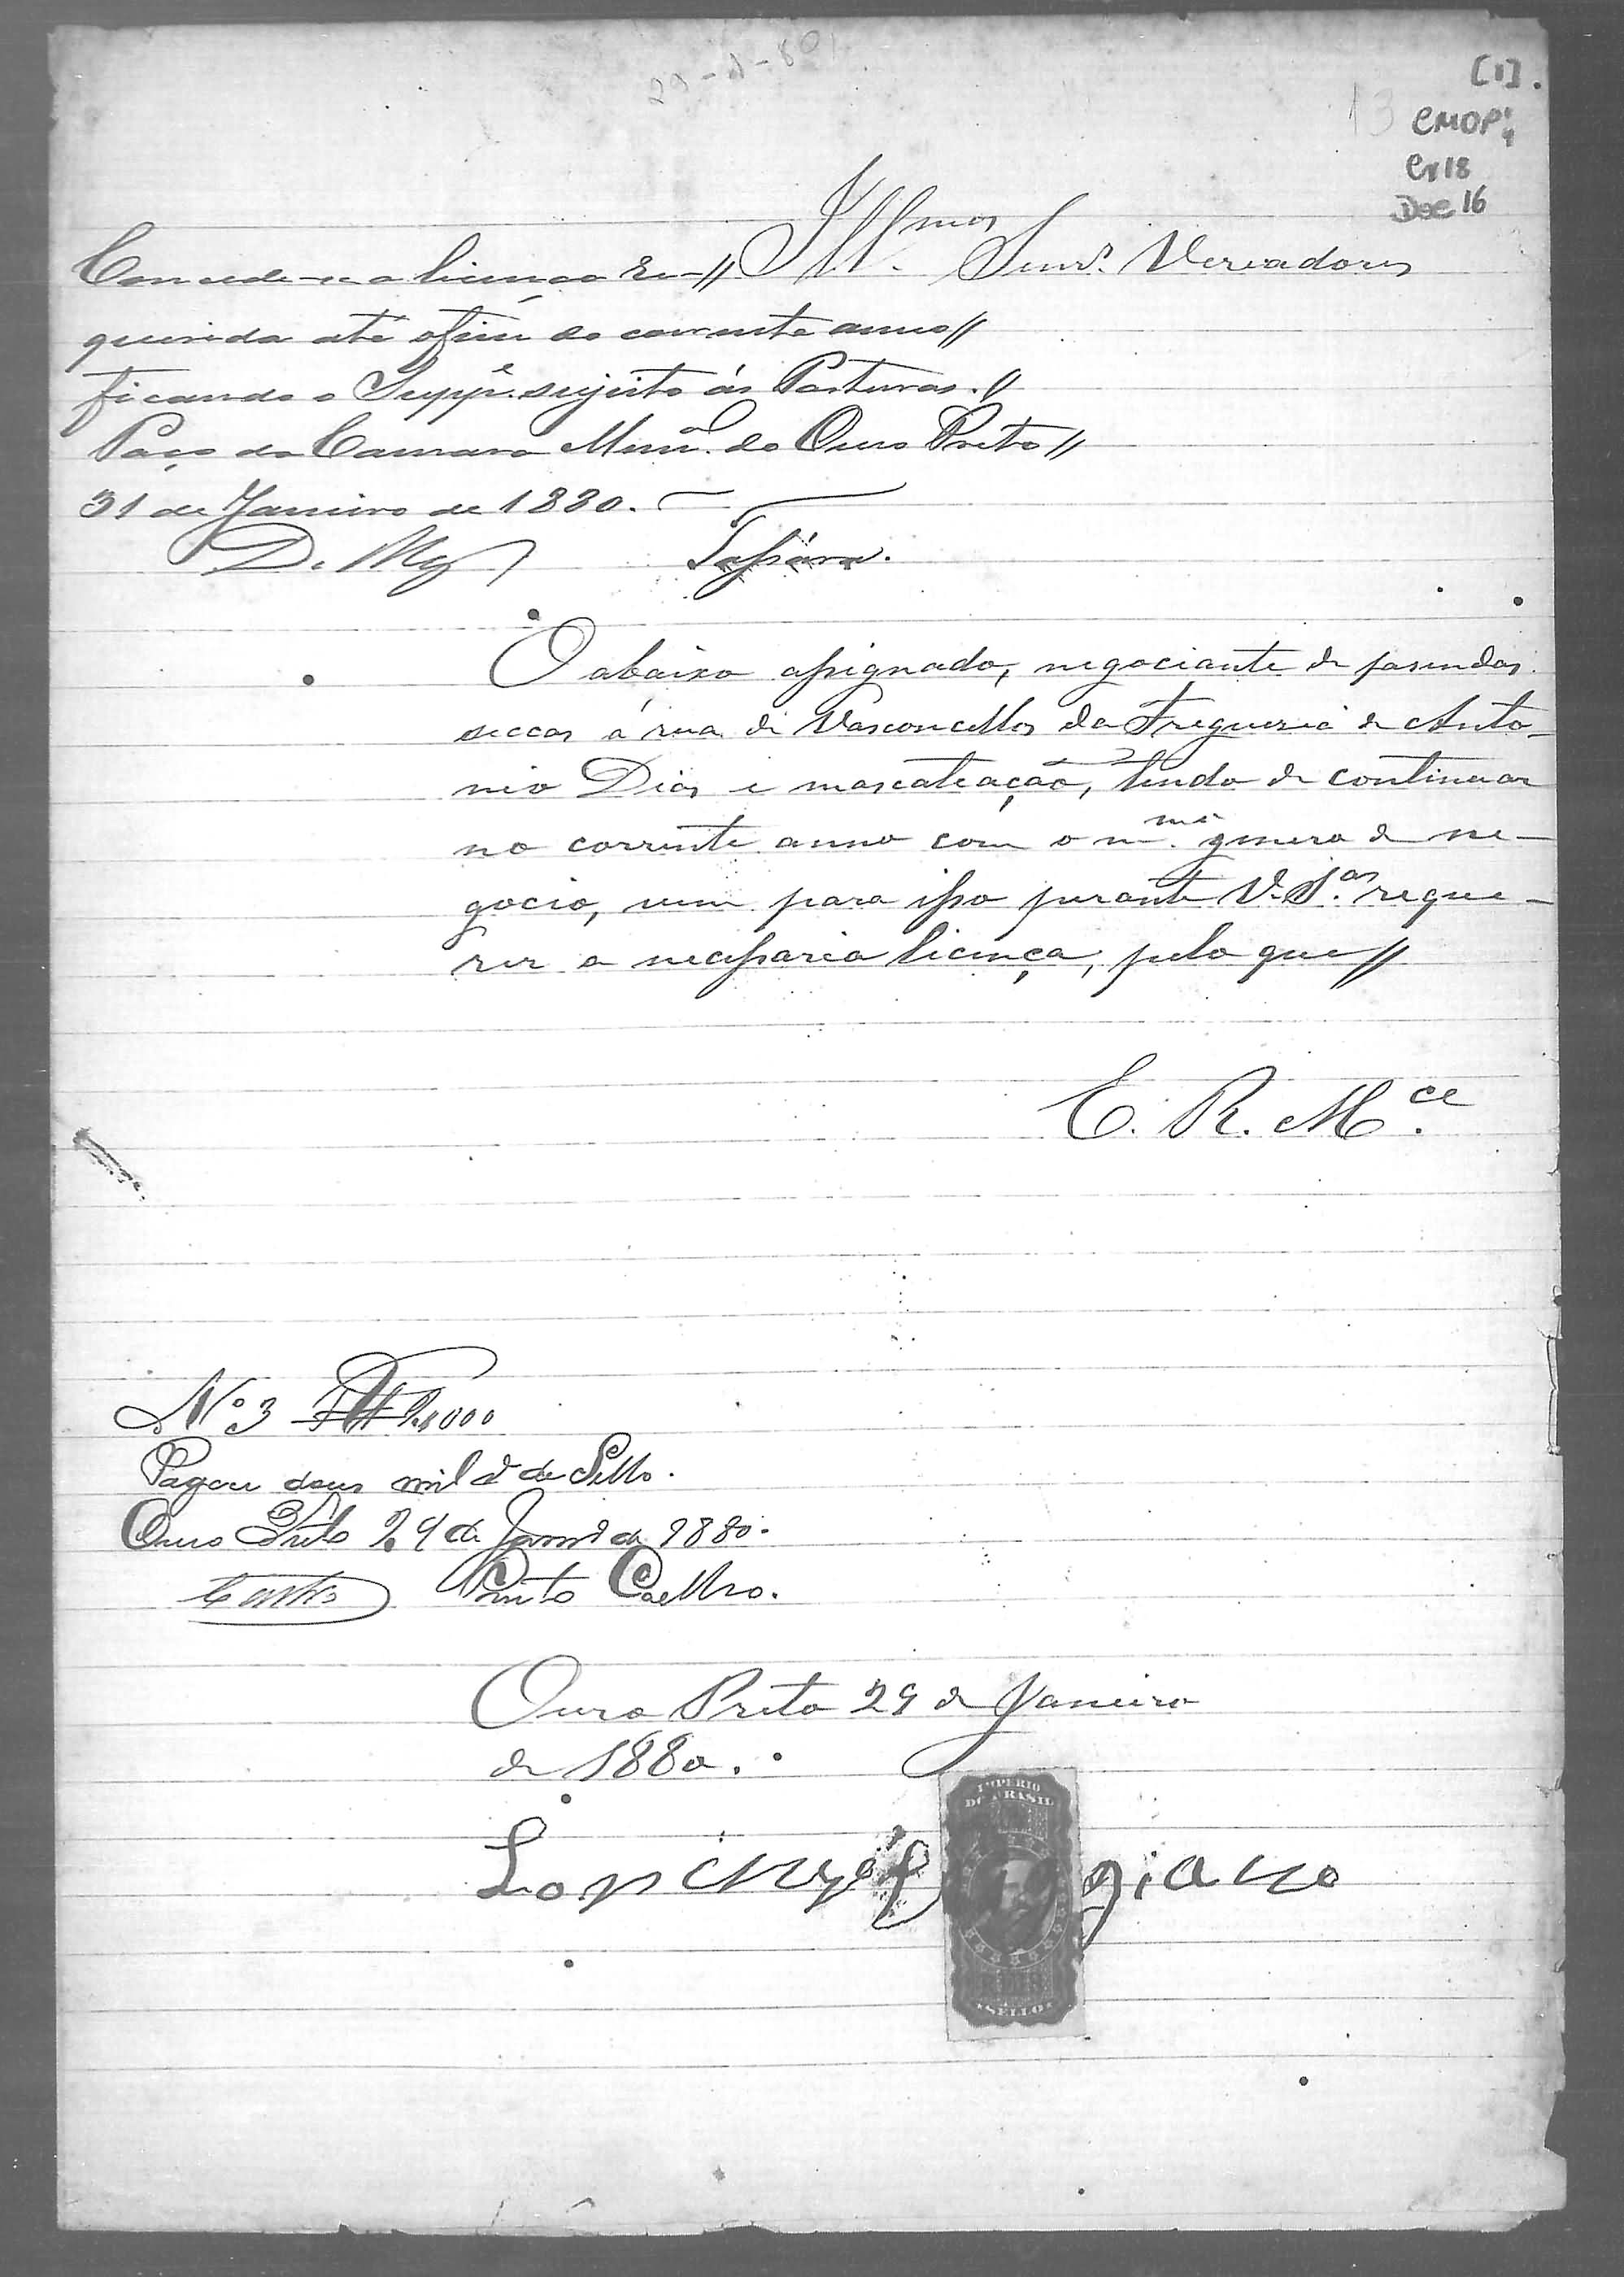 29-1-80
[1].
13 CMOP
Cx18
Doc 16
Ill.mos Senr.s Vereadores
Concede-se a licença re-//
querida até o fim do corrente anno//
ficando o Supp.e sujeito ás Posturas.//
Paço da Camara Mun.al do Ouro Preto//
31 de Janeiro de 1880.
D. Mg
O abaixo assignado, negociante de fasendas
seccas á rua de Vasconcellos da Freguesia de Anto-
nio Dias e mascateação, tendo de continuar
no corrente anno com o m.mo genero de ne-
gocio, vem para isso perante V.S.as reque-
rer a necessaria licença, pelo que//
E. R. M.ce
N.o 3 2$000
Pagou dous mil r de Sello.
Ouro Preto 29 de Janr.o de 1880.
Castro Pinto Coelho.
Ouro Preto 29 de Janeiro
de 1880.
IMPERIO
DO BRASIL
giano
SELLO